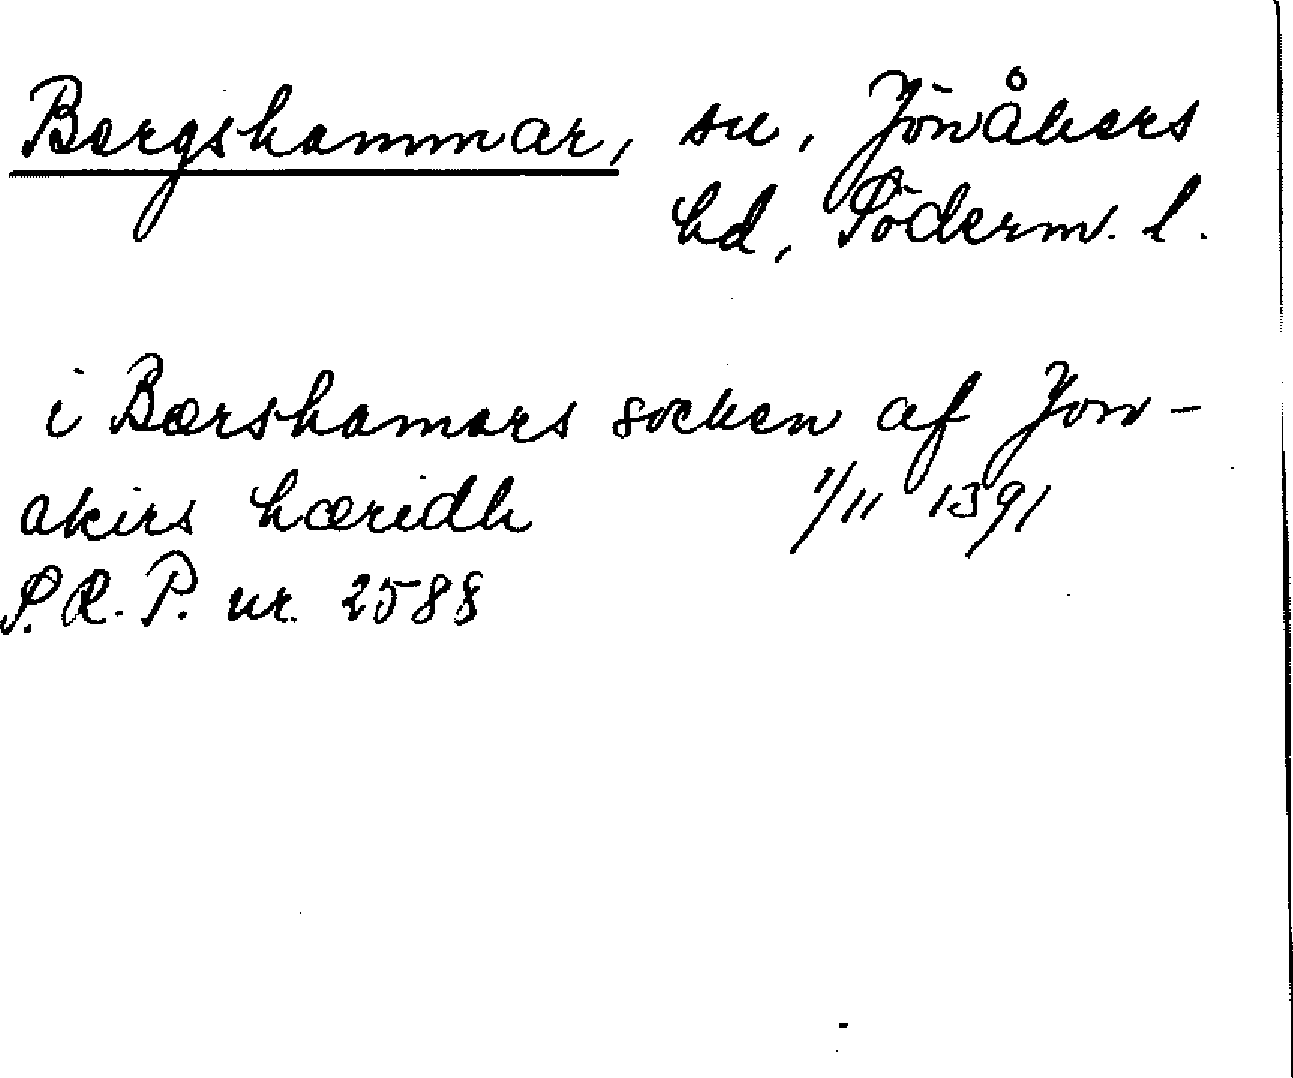 Bergshammar, sn, Jönåkers
hd, Söderm. l.
i Bærshamars socken af Jon-
akirs hæridh 1/11 1391
S.R.P. nr. 2588